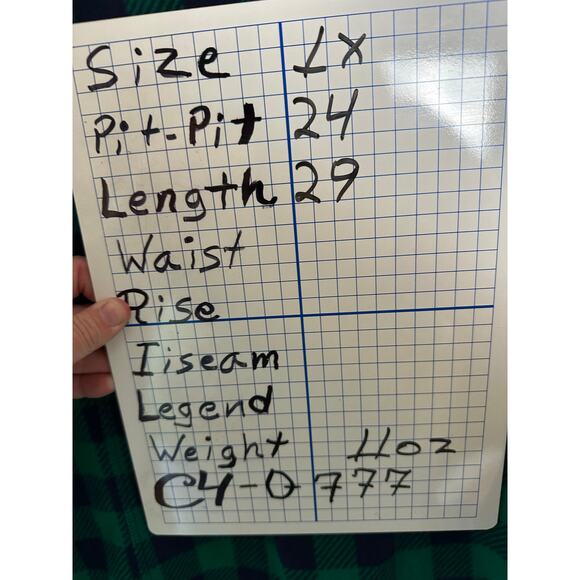 Size 1X
Pit-Pit 24
Length 29
Waist
Rise
Iiseam
Legend
Weight 11oz
C4-0777